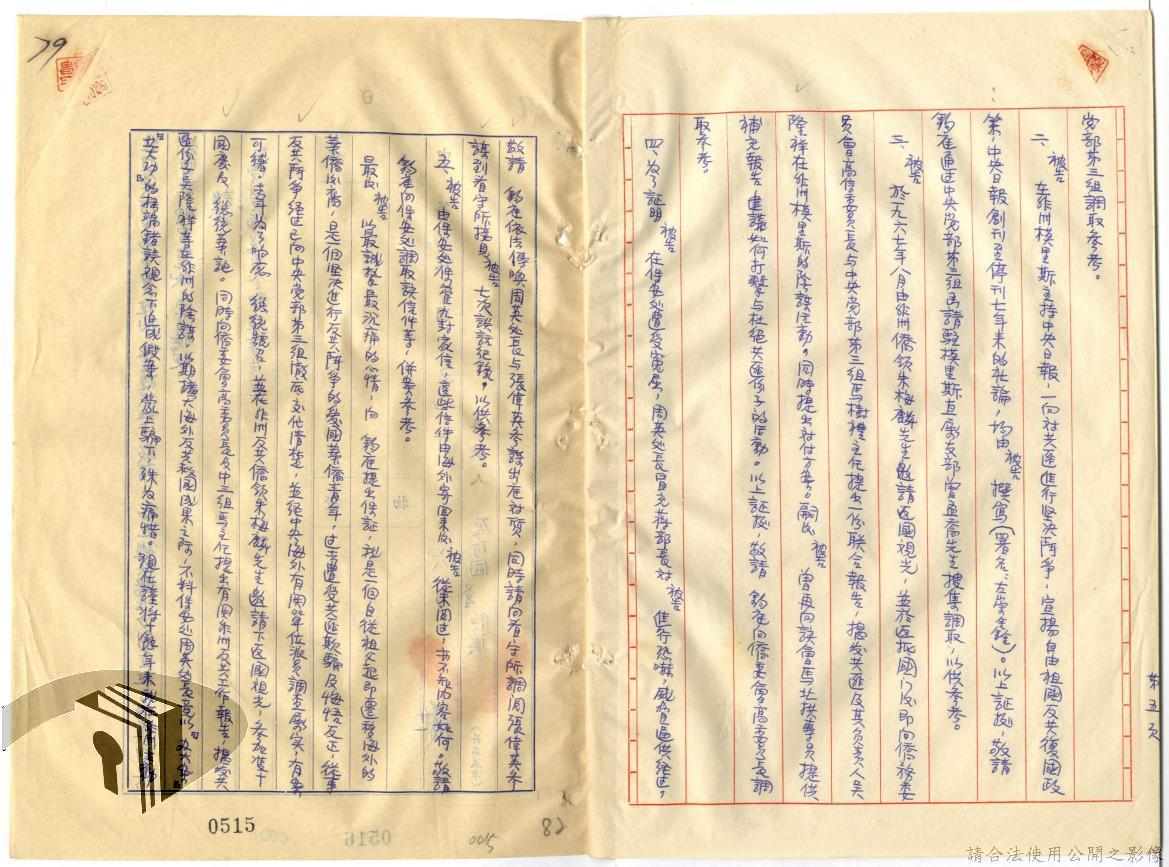 第五頁
党部第三組調取參考。
二、被告在非洲模里斯主持中央日報,一向对共匪進行坚决鬥爭,宣揚自由祖國反共復國政
策,中央日報創刊至停刊七年来的社論,均由被告撰寫(署名:左	)。以上証據,敬請
鈞座通过中央党部第三組馬請駐模里斯直屬支部曾	喬先生搜集調取,以供參考。
三、被告於一九六七年八月由非洲僑領朱梅麟先生邀請返國観光,並於返抵國门後即向僑務委
員會高信委員長与中央党部第三組馬樹禮主任提出一份联合報告,揭发共匪及其負責人員吴
隆祥在非洲模里斯的陰謀活動。同時提出对付方案。嗣後被告曾再向該會	委員提供
補充報告,建議如何打擊与杜绝共匪份子的活動。以上証據,敬請 鈞座向僑委會高委員長調
取參考。
四、为了証明被告在保安处遭受寃屈,周英处長冒充蒋部長对被告進行恐嚇,威脅逼供経过,
敬請 鈞座依法傳喚周英处長与張偉英參謀出庭对質,同時請向看守所調閱張偉英參
謀到看守所接見被告七次談話紀錄。以供參考。
五、被告由保安处保管九封家信,這些信件由海外寄回来後被告從未閱过,亦不知内容如何。敬請
鈞座向保安处調取該信件等,併案參考。
最後被告以最誠挚最沉痛的心情,向 鈞座提出保証,我是一個自從祖父起即遷移海外的
華僑份裔,是個坚决進行反共鬥爭的愛國華僑青年,过去遭受共匪欺騙及悔悟反正,從事
反共鬥爭経过已向中央党部第三組徹底交代清楚,並経中央海外有関單位派員調查屬实,有案
可稽。去年为了响應 總統號召,並在非洲反共僑領朱梅麟先生邀請下返國観光,參加双十
國慶及 總統華誕。同時向僑委會高委員長及中三組馬主任提出有関非洲反共工作報告,揭发共
匪份子吴隆祥等在非洲的陰謀,以期擴大海外反共救國成果之際,不料保安处周英处長竟以「	
共大功」的極端錯誤观念下造成假案,欺上騙下,殊为痛惜。現在謹将十餘年来	
79
0515
0516
0015
82
請合法使用公開之影像